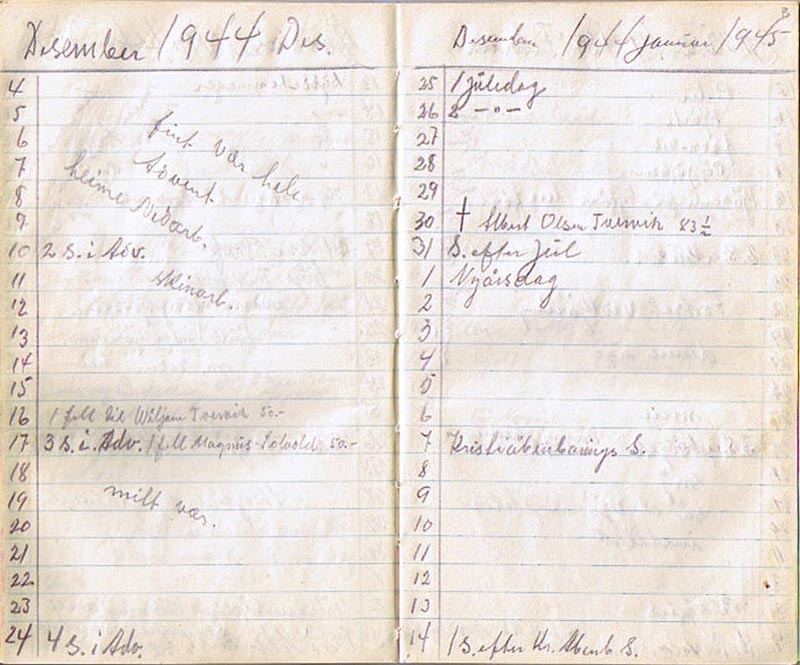 Desember 1944 Des.
4
5
6 fint vær hele
7 Advent
8 heime Vedarb.
9
10 2 S. i Adv.
11 skinarb.
12
13
14
15
16 1 fell til Wiljam Tvervik 50.-
17 3 S. i Adv. 1 fell Magnus Solvold 50.-
18
19 milt vær.
20
21
22
23
24 4 S. i Adv.
Desember 1944 januar 1945
25 1 juledag
26 2 -"-
27
28
29
30 † Albert Olsen Tvervik 83 ½
31 S. efter Jul
1 Nyårsdag
2
3
4
5
6
7 Kristiåbenbarings S.
8
9
10
11
12
13
14 1 S. efter Kr. Åbenb S.